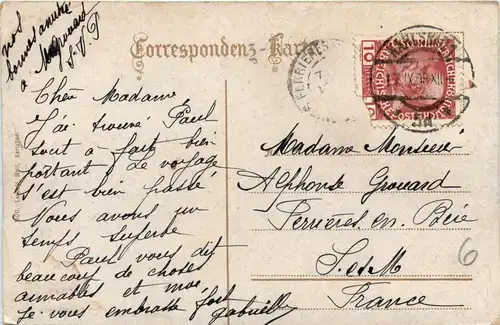 nos
bonnes amitiés
à Margueritte
S.V.P
Correspondenz-Karte
Chère Madame
J'ai trouvé Paul
tout à fait bien
portant. Le voyage
s'est bien passé
Nous avons un
temps superbe
Paul vous dit
beaucoup de choses
aimables et moi
je vous embrasse fort
Gabrielle
KARLSBAD
FERRIERES
10
Madame Monsieur
Alphonse Grouard
Ferrières en Brie
S. et M
France
6